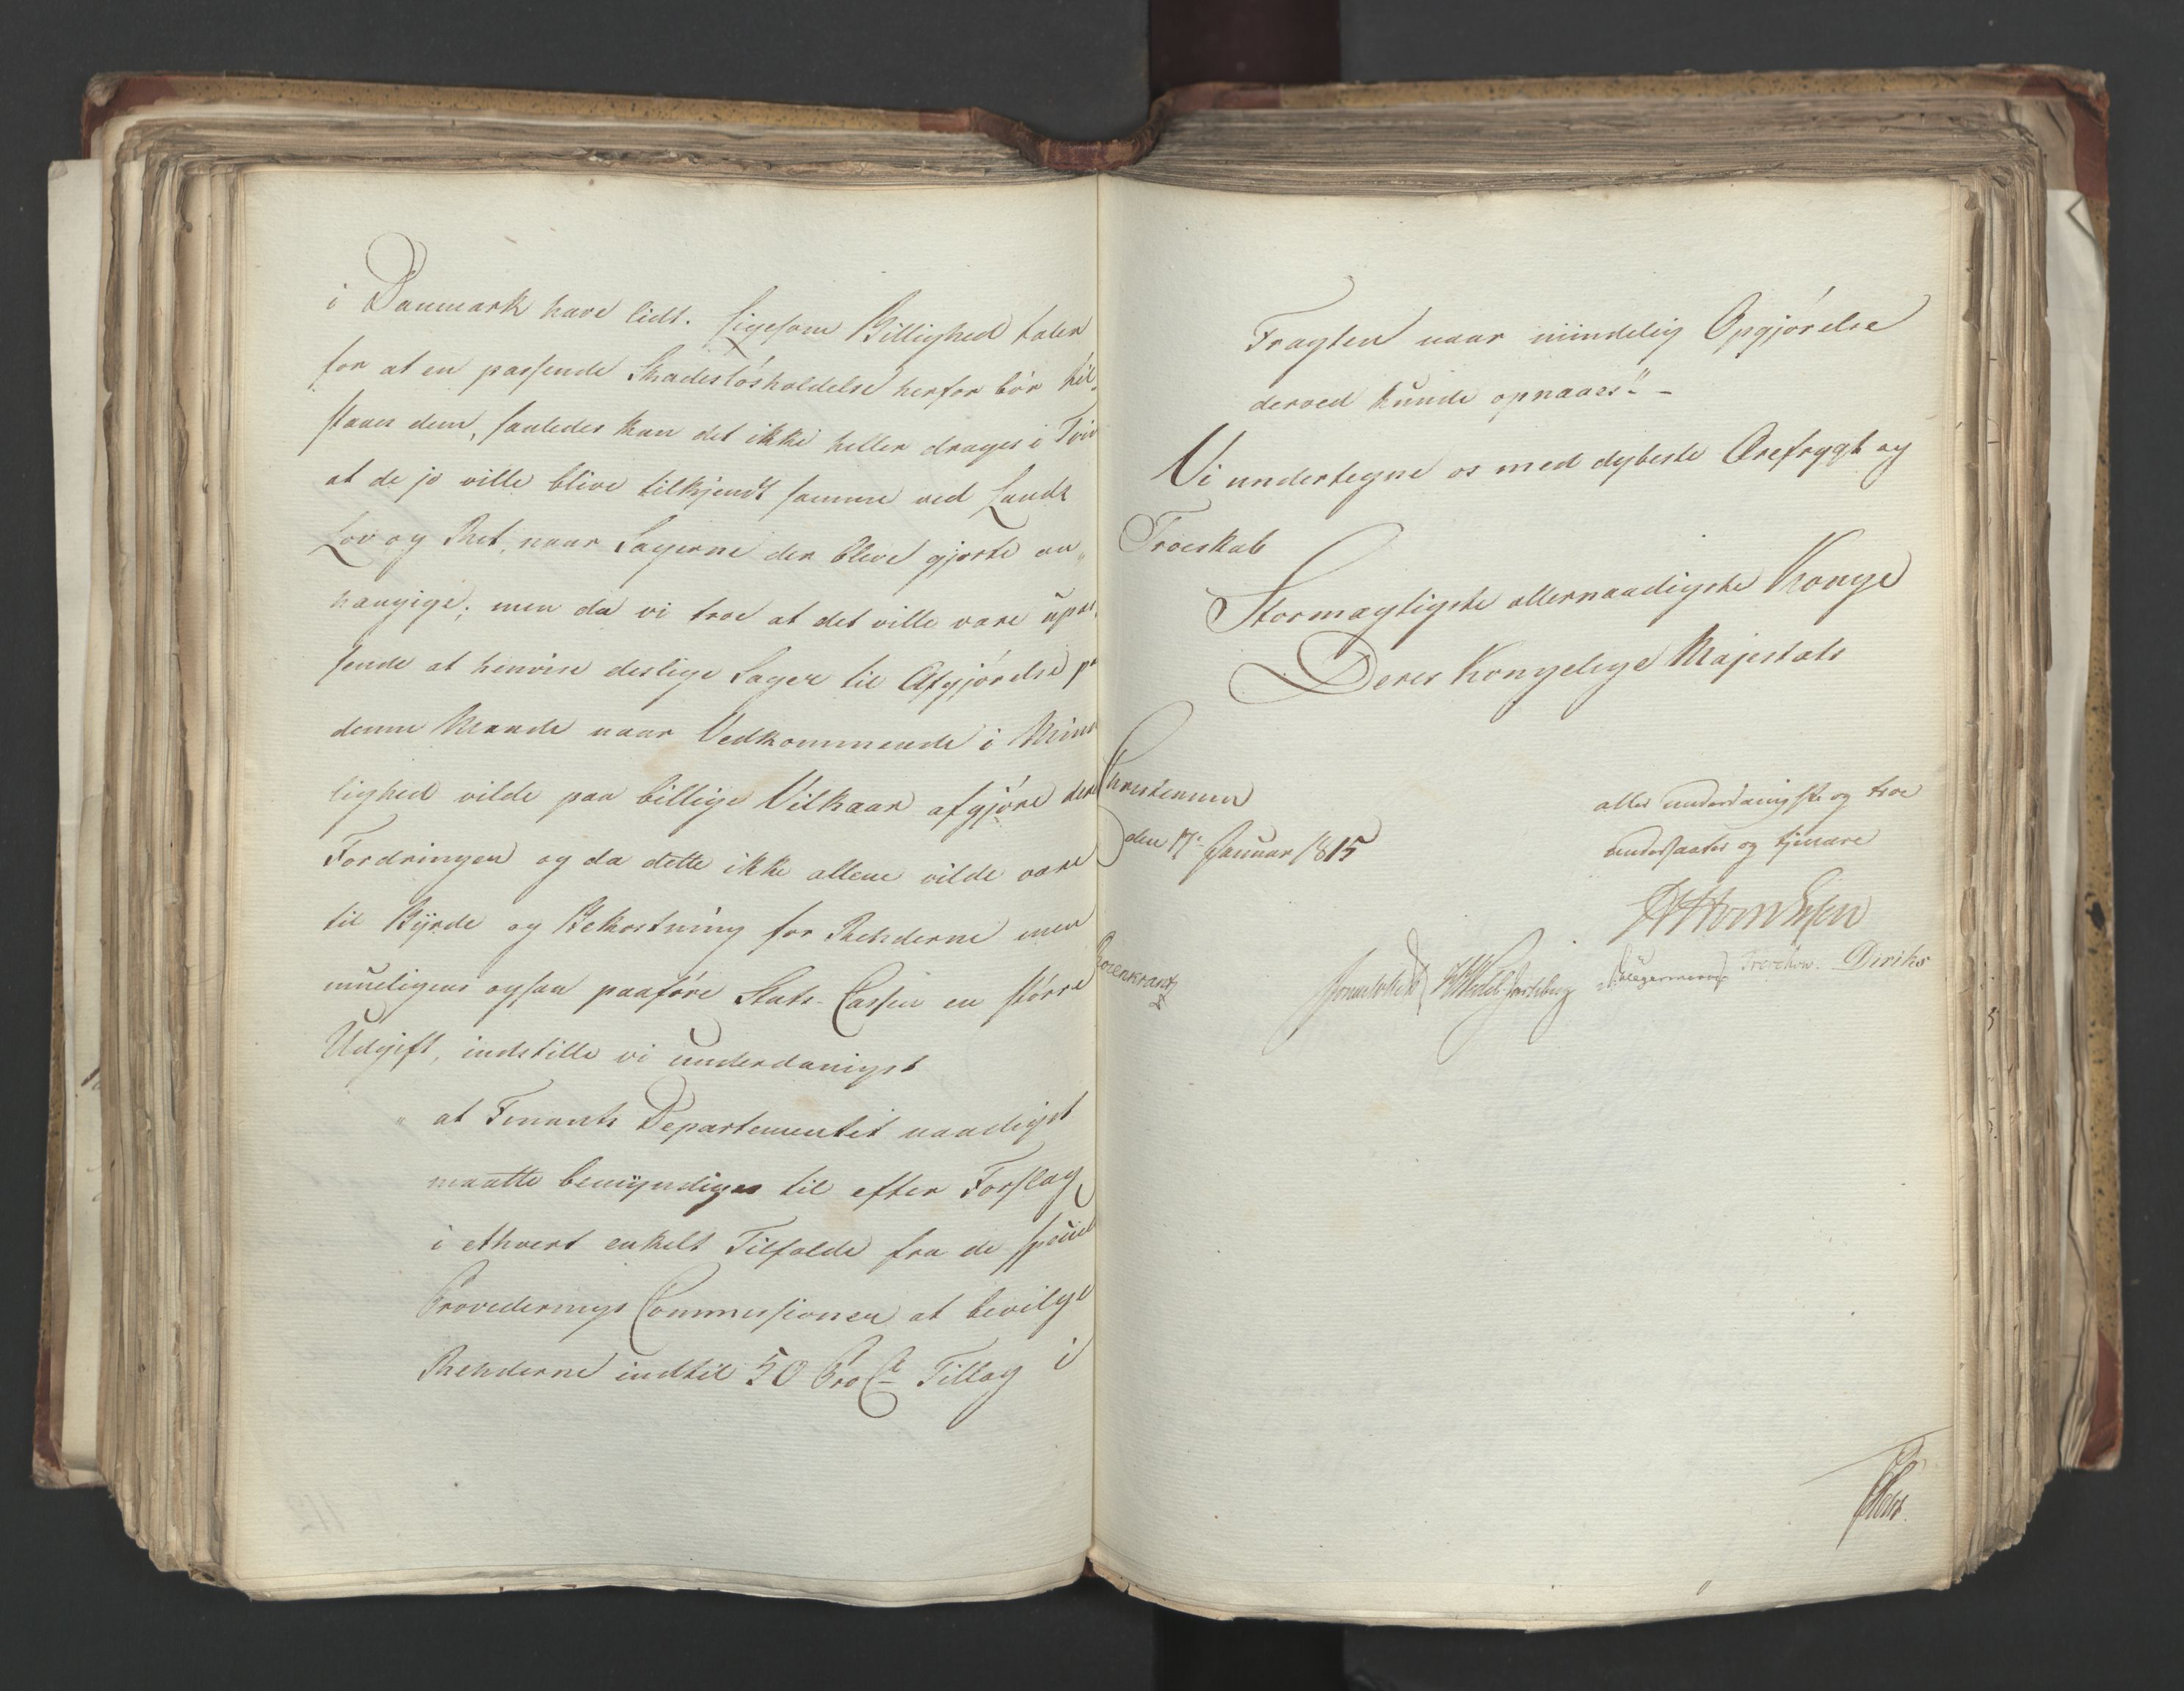 i Danmark have lidt. Ligesom Billighed taler
for at en passende Skadesløsholdelse herfor bør til„
staaes dem, saaledes kan det ikke heller drages i Tviv
at de jo ville blive tilkjendt samme ved Lands
Lov og Ret, naar Sagerne der bleve gjorte an„
hængige; men da vi troe at det ville være upas„
sende at henvise deslige Sager til Afgjørelse p
denne Maade naar Vedkommende i Mind
lighed vilde paa billige Vilkaar afgjøre der
Fordringen og da dette ikke allene vilde være
til Byrde og Bekostning for Rehderne men
mueligens ogsaa paaføre Stats-Cassen en større
Udgift, indstille vi underdanigst
„ at Finants Departementet naadigst
maatte bemyndiges til efter Forslag
i ethvert enkelt Tilfælde fra de
Provederings Commissionen at bevilge
Rehderne indtil 50 Pro Ct Tillæg i
Fragten naar mindelig Opgjørelse
derved kunde opnaaes" -
Vi undertegne os med dybeste Ærefrygt og
Troeskab
Stormægtigste allernaadigste Konge
Deres Kongelige Majestæts
Christiania
den 17. Januar 1815
aller underdanigste og troe
undersaatter og tjenere
Rosenkrantz
Sommerhielm
Treschow. Diriks